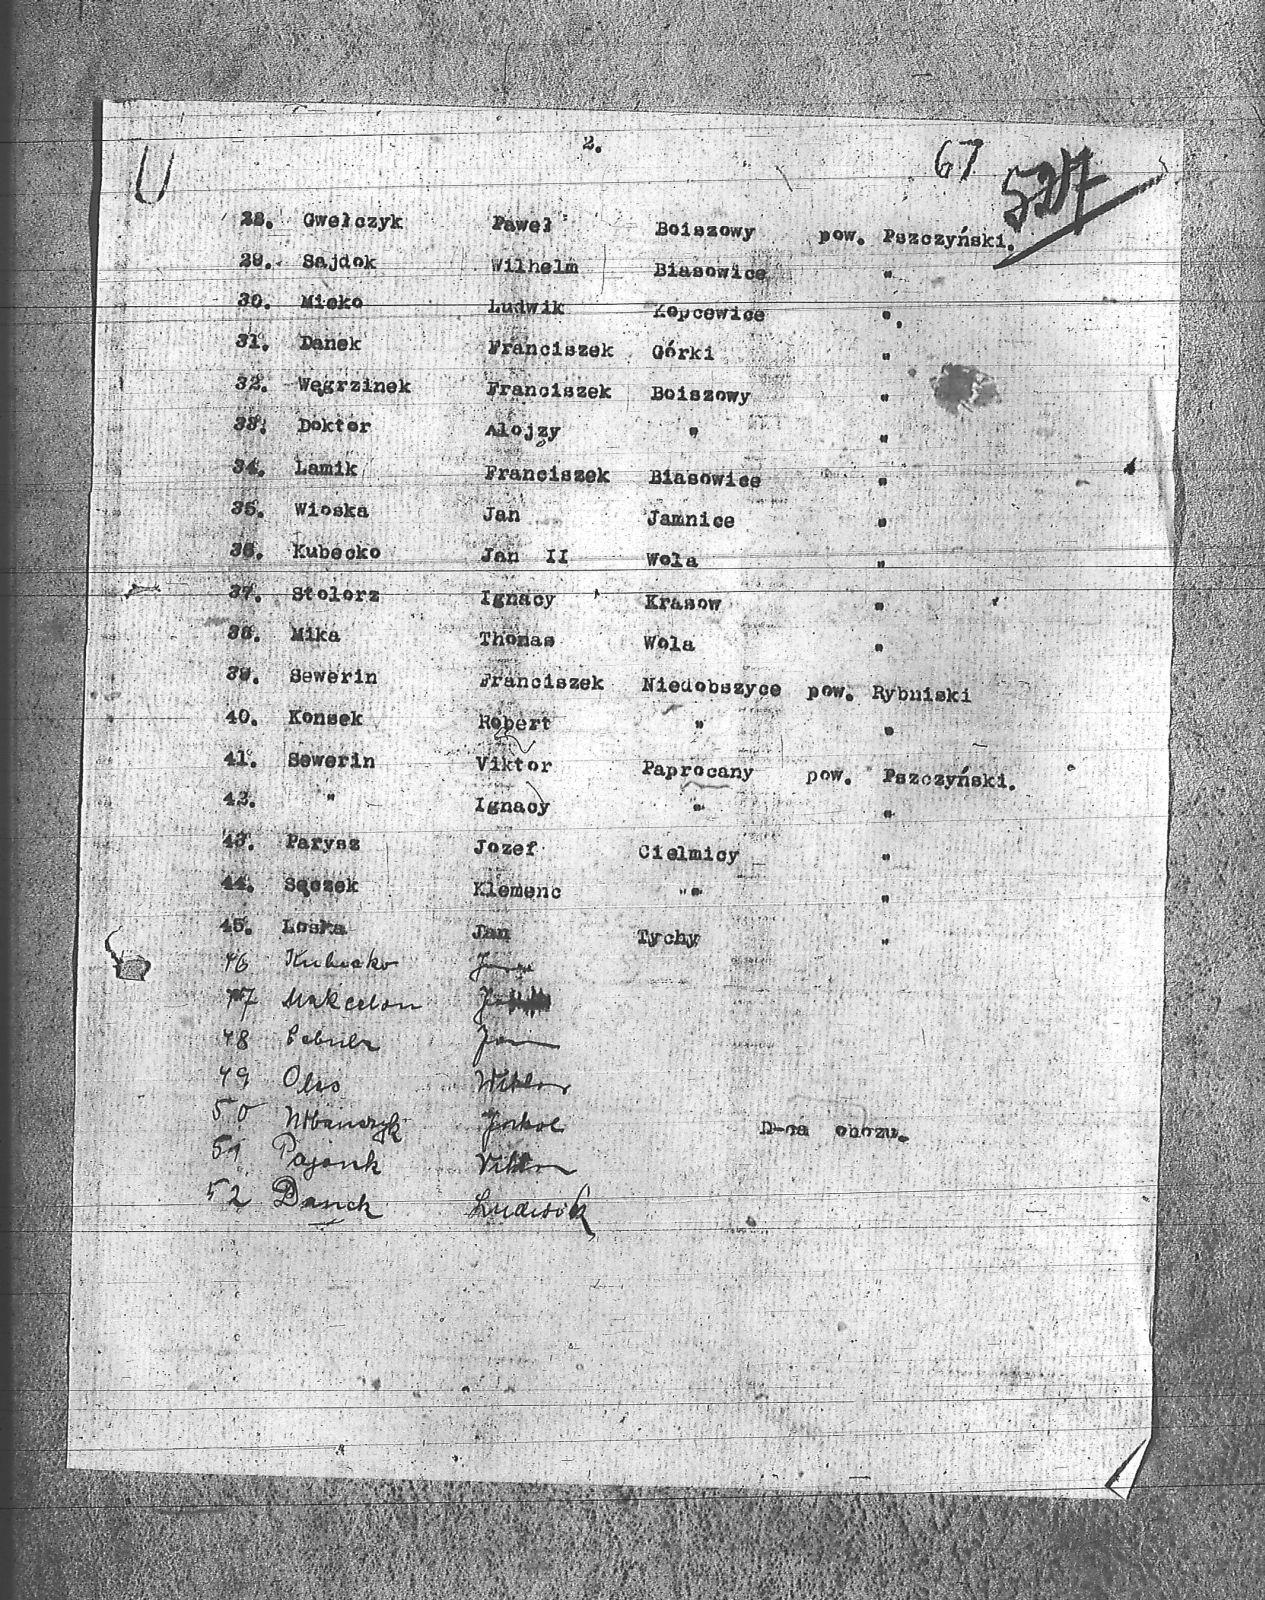 2.
67
527
28. Gwełczyk Paweł Boiszowy pow. Pszczyński.
29. Sajdok Wilhelm Biasowice "
30. Mieko Ludwik Kopcewice "
31. Danek Franciszek Górki "
32. Węgrzinek Franciszek Boiszowy "
33. Doktor Alojzy " "
34. Lamik Franciszek Biasowice "
35. Wioska Jan Jamnice "
36. Kubecko Jan II Wola "
37. Stolorz Ignacy Krasow "
38. Mika Thomas Wola "
39. Sewerin Franciszek Niedobszyce pow. Rybniski
40. Konsek Robert " "
41. Sewerin Viktor Paprocany pow. Pszczyński.
42. " Ignacy " "
43. Parysz Jozef Cielmicy "
44. Sęczek Klemenc " "
45. Loska Jan Tychy "
46
47
48 Jan
49 Wiktor
50
D-ca obozu.
51 Pajonk Viktor
52 Danek Ludwik